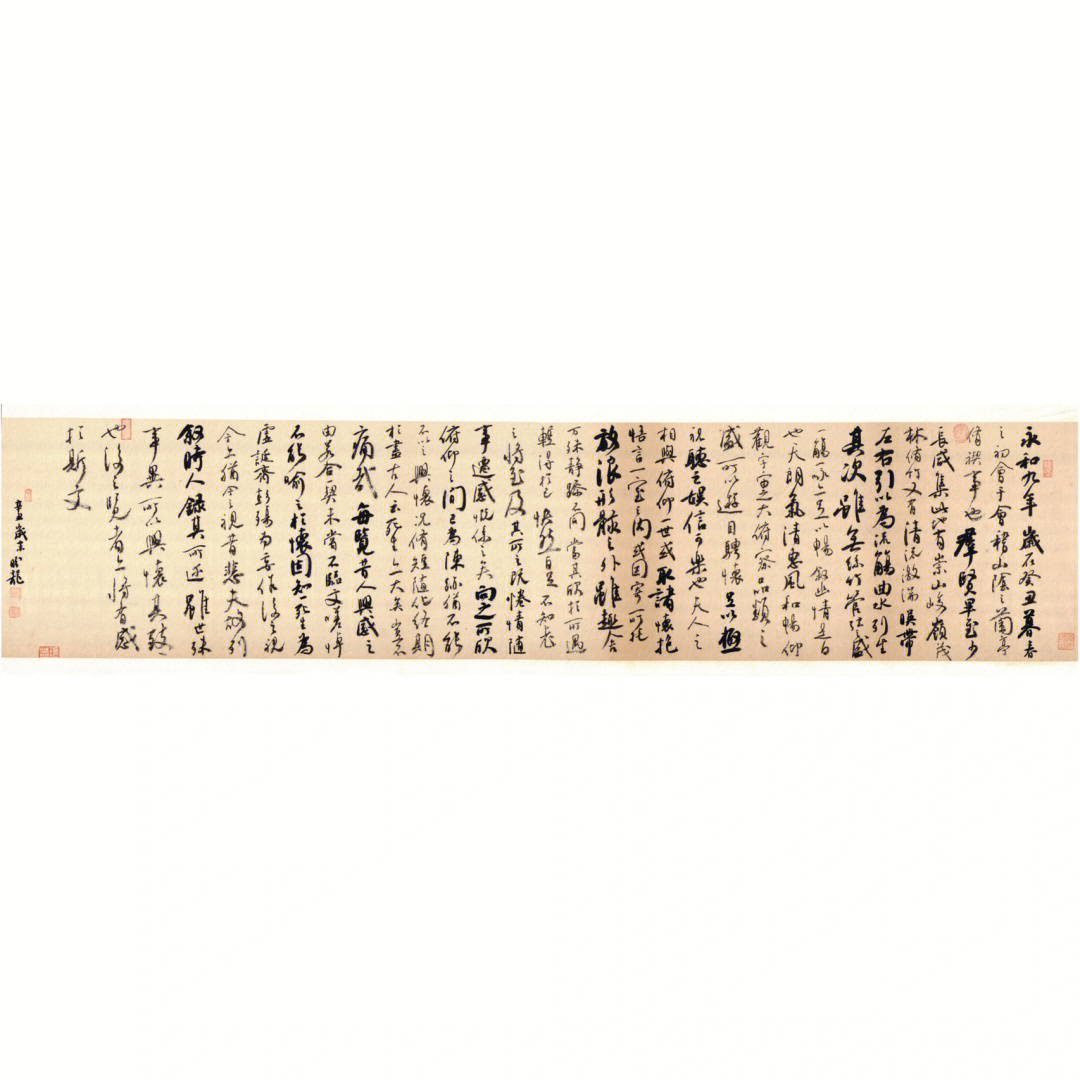 永和九年歲在癸丑暮春
之初會于會稽山陰之蘭亭
脩禊事也羣賢畢至少
長咸集此地有崇山峻嶺茂
林脩竹又有清流激湍暎帶
左右引以為流觴曲水列坐
其次雖無絲竹管弦盛
一觴一詠亦足以暢敘幽情是日
也天朗氣清惠風和暢仰
觀宇宙之大俯察品類之
盛所以遊目騁懷足以極
視聽之娛信可樂也夫人之
相與俯仰一世或取諸懷抱
悟言一室之內或因寄所託
放浪形骸之外雖趣舍
萬殊靜躁不同當其欣於所遇
輙得於己快然自足不知老
之將至及其所之既惓情隨
事遷感慨係之矣向之所欣
俯仰之間已為陳跡猶不能
不以之興懷況脩短隨化終期
於盡古人云死生亦大矣豈不
痛哉每覽昔人興感之
由若合一契未嘗不臨文嗟悼
不能喻之於懷固知一死生為
虛誕齊彭殤為妄作後之視
今亦猶今之視昔悲夫故列
敘時人錄其所述雖世殊
事異所以興懷其致一
也後之覽者亦將有感
於斯文
辛丑歲末